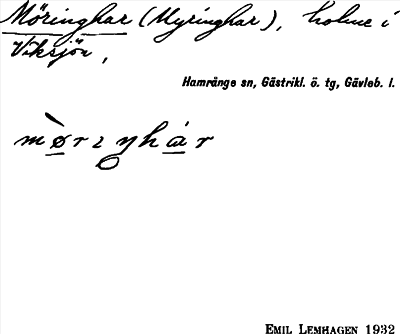 Möringhar (Myringhar), holme i
Viksjön,
Hamrånge sn, Gästrikl. ö. tg, Gävleb. l.
mø̀rɩŋhàr
EMIL LEMHAGEN 1932